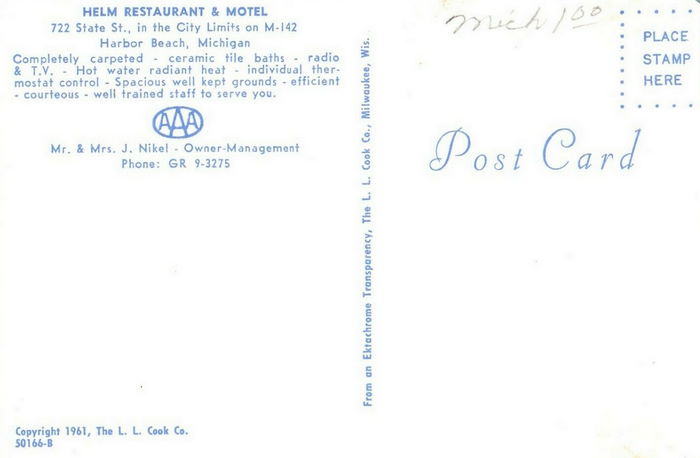 HELM RESTAURANT & MOTEL
722 State St., in the City Limits on M-142
Harbor Beach, Michigan
Completely carpeted - ceramic tile baths - radio
& T.V. - Hot water radiant heat - individual ther-
mostat control - Spacious well kept grounds - efficient
- courteous - well trained staff to serve you.
AAA
Mr. & Mrs. J. Nikel - Owner-Management
Phone: GR 9-3275
Copyright 1961, The L. L. Cook Co.
50166-B
From an Ektachrome Transparency, The L. L. Cook Co., Milwaukee, Wis.
Mich 100
PLACE
STAMP
HERE
Post Card